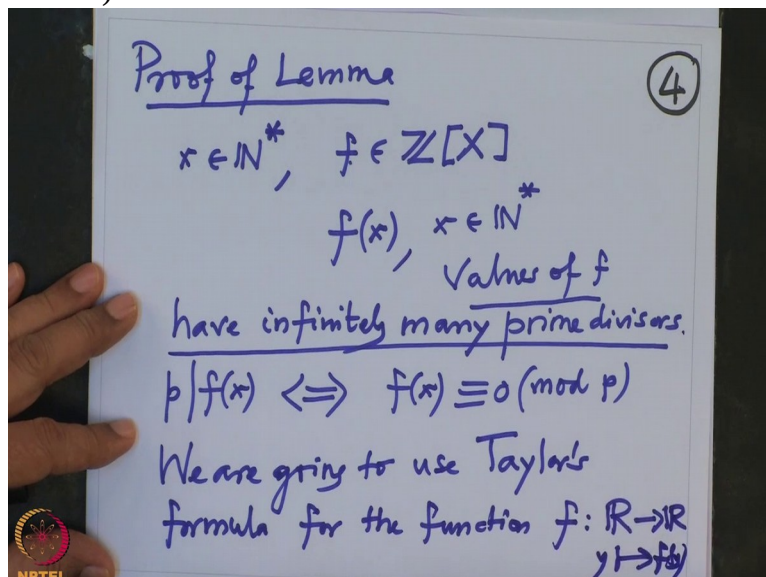 Proof of Lemma
④
x ∈ ℕ*, f ∈ ℤ[X]
f(x), x ∈ ℕ*
Values of f
have infinitely many prime divisors.
p|f(x) ⟺ f(x) ≡ 0 (mod p)
We are going to use Taylor's
formula for the function f: ℝ→ℝ
y ↦ f(y)
NPTEL